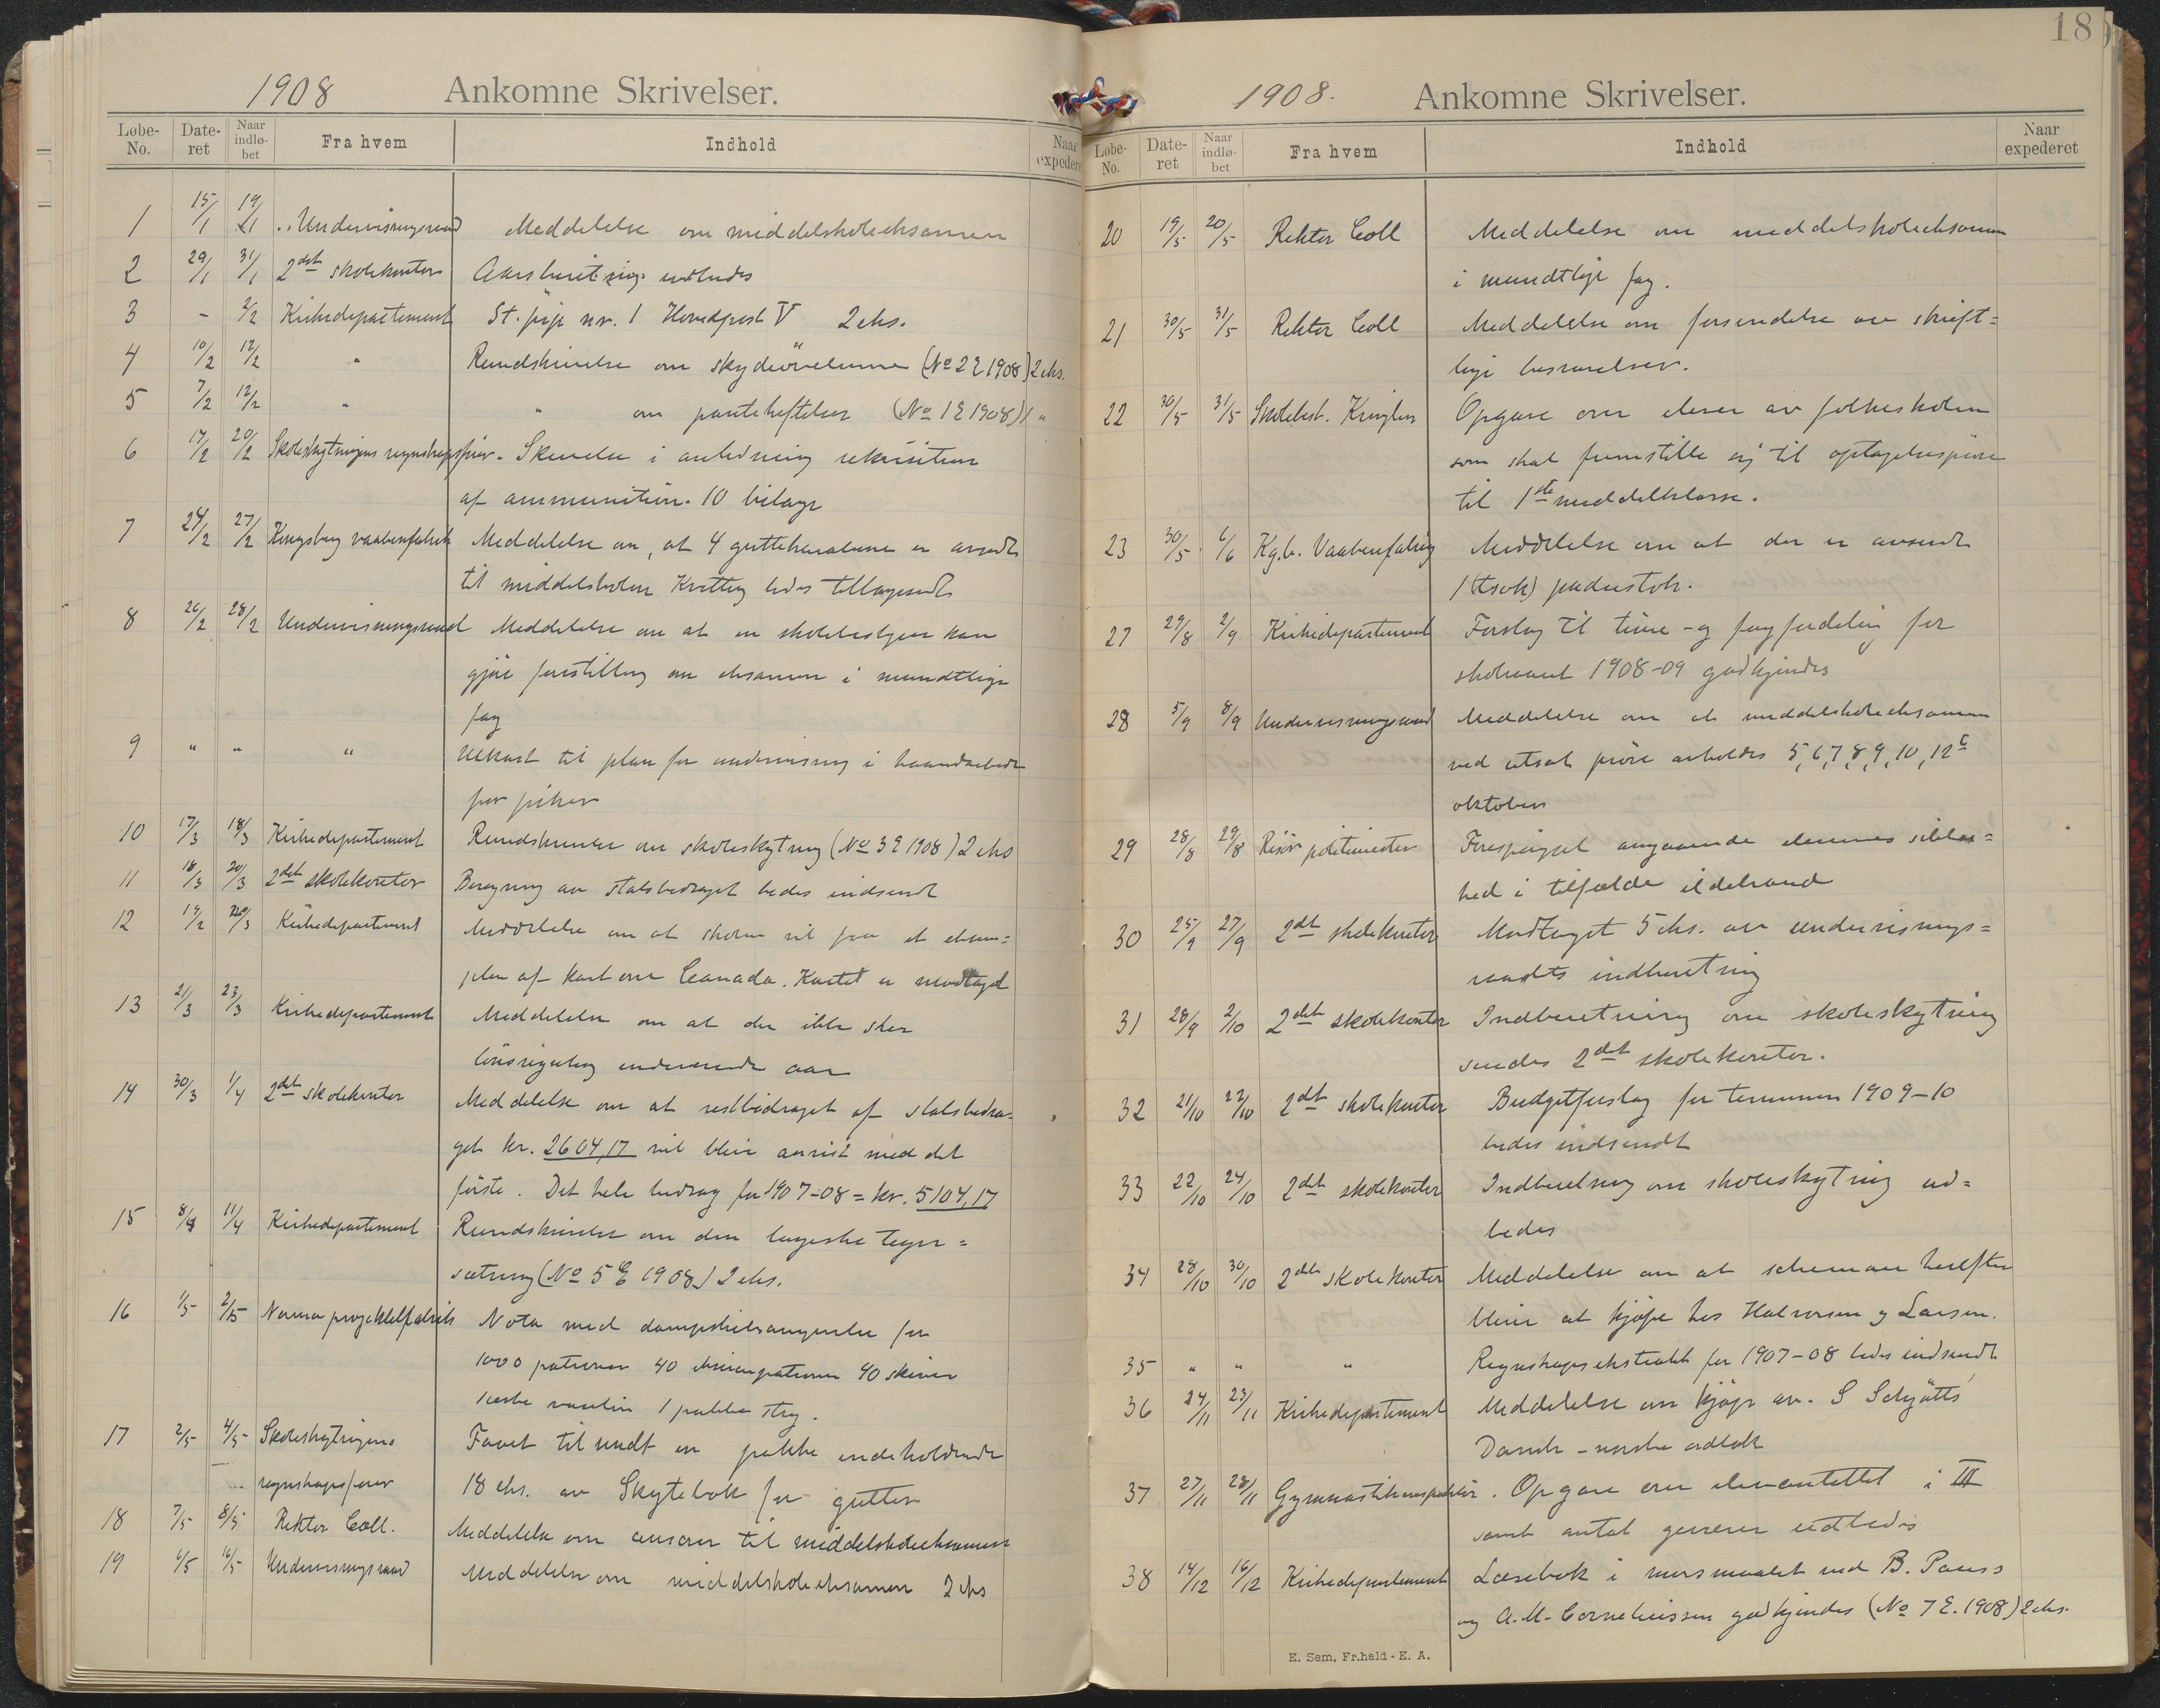 18
1908 Ankomne Skrivelser.
Løbe-No. Date-ret Naar indlø-bet Fra hvem Indhold Naar expederet
1 15/1 19/1 Undervisningsraad Meddelelse om middelskoleeksamen
2 29/1 31/1 2det skolekontor Aarsberetning udbedes
3 - 2/2 Kirkedepartement St. prp. nr. 1 Hovedpost V 2 eks.
4 10/2 12/2 " Rundskrivelse om skydeøvelserne (No 2 E 1908) 2 eks.
5 7/2 12/2 " " om panteheftelser (No 1 E 1908) 1 "
6 17/2 20/2 Skoleskytningens regnskapsfører. Skrivelse i anledning rekvisition
af ammunition. 10 bilage
7 24/2 27/2 Kongsberg vaabenfabrik Meddelelse om, at 4 guttekarabiner er avsendt
til middelskolen Kvittring bedes tilbagesendt
8 26/2 28/2 Undervisningsraad Meddelelse om at en skolebestyrer kan
gjøre forestilling om eksamen i mundtlige
fag
9 " " " Utkast til plan for undervisning i haandarbeide
for piker
10 17/3 18/3 Kirkedepartement Rundskrivelse om skoleskytning (No 3 E 1908) 2 eks
11 18/3 20/3 2det skolekontor Beregning av statsbidraget bedes indsendt
12 19/2 20/3 Kirkedepartement Meddelelse om at skolen vil faa et eksem=
plar af kart over Canada. Kartet er modtaget
13 21/3 23/3 Kirkedepartement Meddelelse om at der ikke sker
lønsregulering indeværende aar
14 30/3 1/4 2det skolekontor Meddelelse om at restbidraget af statsbidra-
get kr. 2604,17 vil blive anvist med det
første. Det hele bidrag for 1907-08 = kr. 5104,17
15 8/4 11/4 Kirkedepartement Rundskrivelse om den logiske tegn=
sætning (No 5 E 1908) 2 eks.
16 1/5 2/5 Norma projektilfabrik Nota med dampskibsangivelse for
1000 patroner 40 eksercerpatroner 40 skiver
1 æske vaselin 1 pakke stry.
17 2/5 4/5 Skoleskytningens Faaet tilsendt en pakke indeholdende
regnskapsfører 18 eks. av Skytebok for gutter
18 7/5 8/5 Rektor Coll. Meddelelse om censorer til middelskoleeksamen
19 6/5 16/5 Undervisningsraad Meddelelse om middelskoleeksamen 2 eks
1908. Ankomne Skrivelser.
Løbe-No. Date-ret Naar indlø-bet Fra hvem Indhold Naar expederet
20 19/5 20/5 Rektor Coll Meddelelse om middelskoleeksamen
i mundtlige fag.
21 30/5 31/5 Rektor Coll Meddelelse om forsendelse av skrift=
lige besvarelser.
22 30/5 31/5 Skolebest. Opgave over elever av folkeskolen
som skal fremstille sig til optagelsesprøve
til 1ste middelklasse.
23 30/5 6/6 Kg.b. Vaabenfabrik Meddelelse om at der er avsendt
1 (tsok) pudsestok.
27 29/8 2/9 Kirkedepartement Forslag til time- og fagfordeling for
skoleaaret 1908-09 godkjendes
28 5/9 8/9 Undervisningsraad Meddelelse om at middelskoleeksamen
ved utsat prøve avholdes 5, 6, 7, 8, 9, 10, 12
oktober
29 28/8 29/8 Risør politimester Forespørgsel angaaende elevernes sikker=
hed i tilfælde ildebrand
30 25/9 27/9 2det skolekontor Modtaget 5 eks. av undervisnings=
raadets indberetning
31 28/9 2/10 2det skolekontor Indberetning om skoleskytning
sendes 2det skolekontor.
32 21/10 22/10 2det skolekontor Budgetforslag for terminen 1909-10
bedes indsendt
33 22/10 24/10 2det skolekontor Indberetning om skoleskytning ud=
bedes
34 28/10 30/10 2det skolekontor Meddelelse om at schemaer herefter
blir at kjøpe hos Halvorsen og Larsen.
35 " " " Regnskapsekstrakt for 1907-08 bedes indsendt
36 24/11 23/11 Kirkedepartement Meddelelse om kjøp av S Schjøtts
Dansk-norske ordbok
37 27/11 28/11 Gymnastikinspektør. Opgave over elevantallet i III
samt antal geværer utbedes
38 14/12 16/12 Kirkedepartement Læsebok i morsmaalet ved B. Pauss
og A.M. Corneliussen godkjendes (No 7 E. 1908) 2 eks.
E. Sem, Fr.hald - E. A.